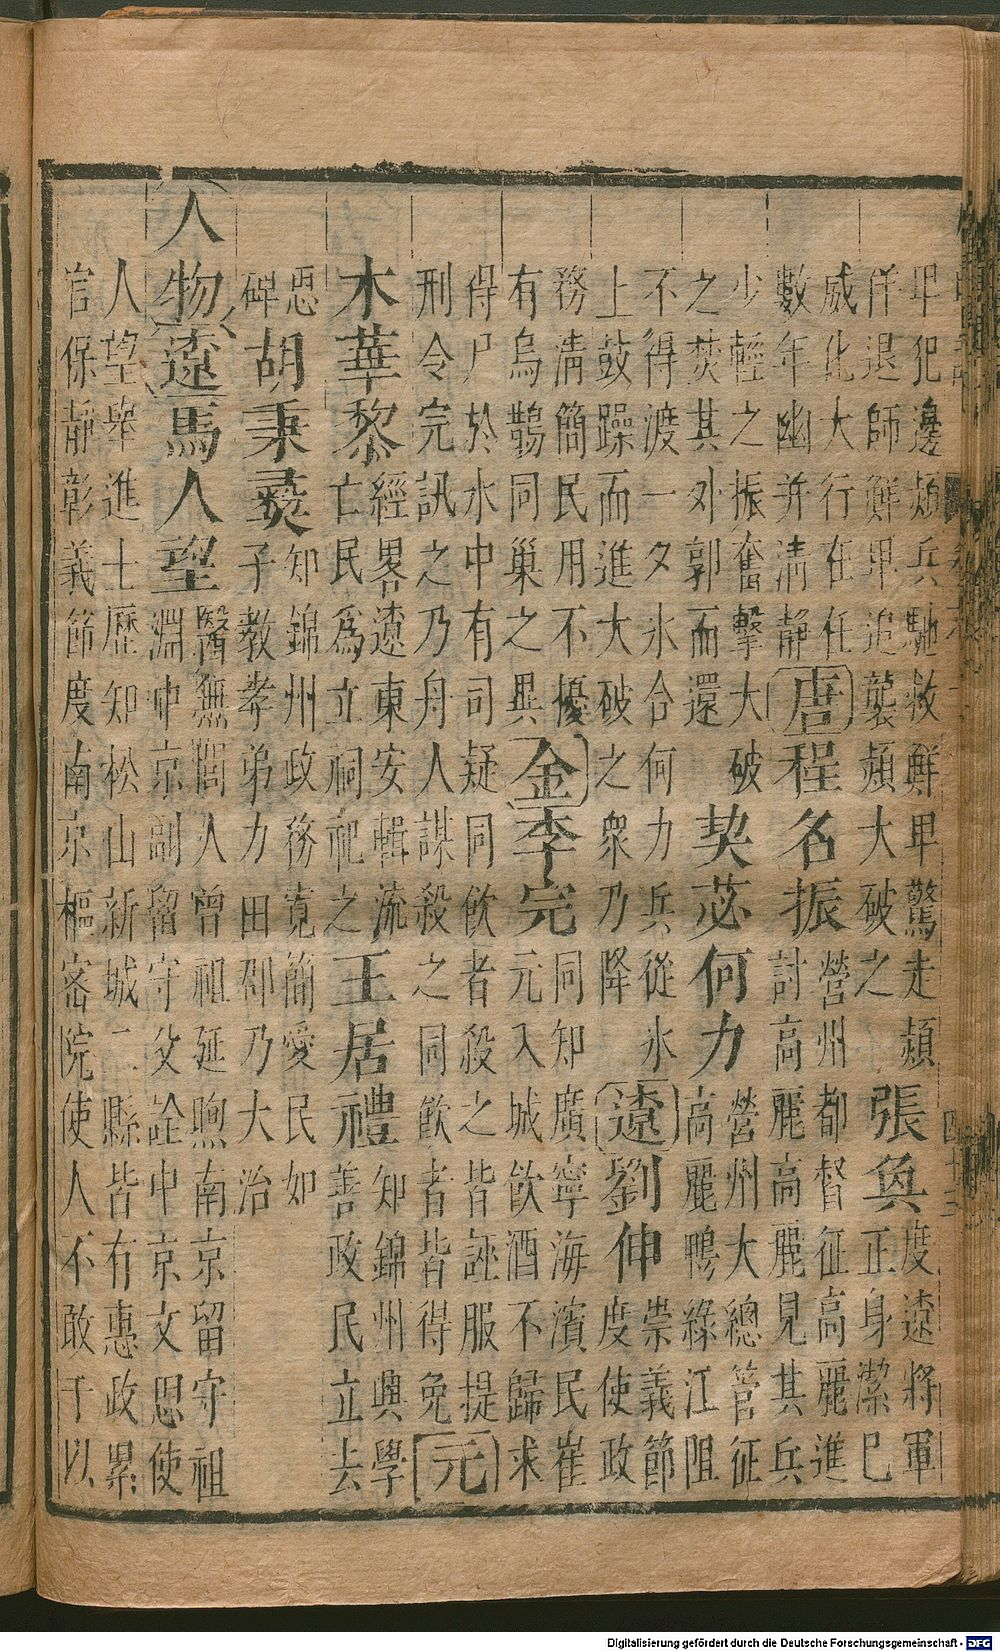 卑犯邊熲兵馳救鮮卑驚走熲
佯退師鮮卑追襲熲大破之
張奐
度遼將軍
正身潔已
威化大行在任
數年幽并清静
唐
程名振
營州都督征高麗進
討高麗高麗見其兵
少輕之振奮擊大破
之焚其外郭而還
契苾何力
營州大總管征
高麗鴨綠江阻
不得渡一夕氷合何力兵從氷
上鼓躁而進大破之衆乃降
遼
劉伸
崇義節
度使政
務清簡民用不擾
有烏鵲同巢之異
金
李完
同知廣寧海濱民崔
元入城飲酒不歸求
得尸於水中有司疑同飲者殺之皆誣服提
刑令完訊之乃舟人謀殺之同飲者皆得免
元
木華黎
經畧遼東安輯流
亡民爲立祠祀之
王居禮
知錦州興學
善政民立去
思
碑
胡秉彝
知錦州政務寛簡愛民如
子教孝弟力田郡乃大治
人物
遼
馬人望
醫無閭人曾祖延煦南京留守祖
淵中京副留守父詮中京文思使
人望舉進士歷知松山新城二縣皆有惠政累
官保靜彰義節度南京樞密院使人不敢干以
四十三
Digitalisierung gefördert durch die Deutsche Forschungsgemeinschaft - DFG